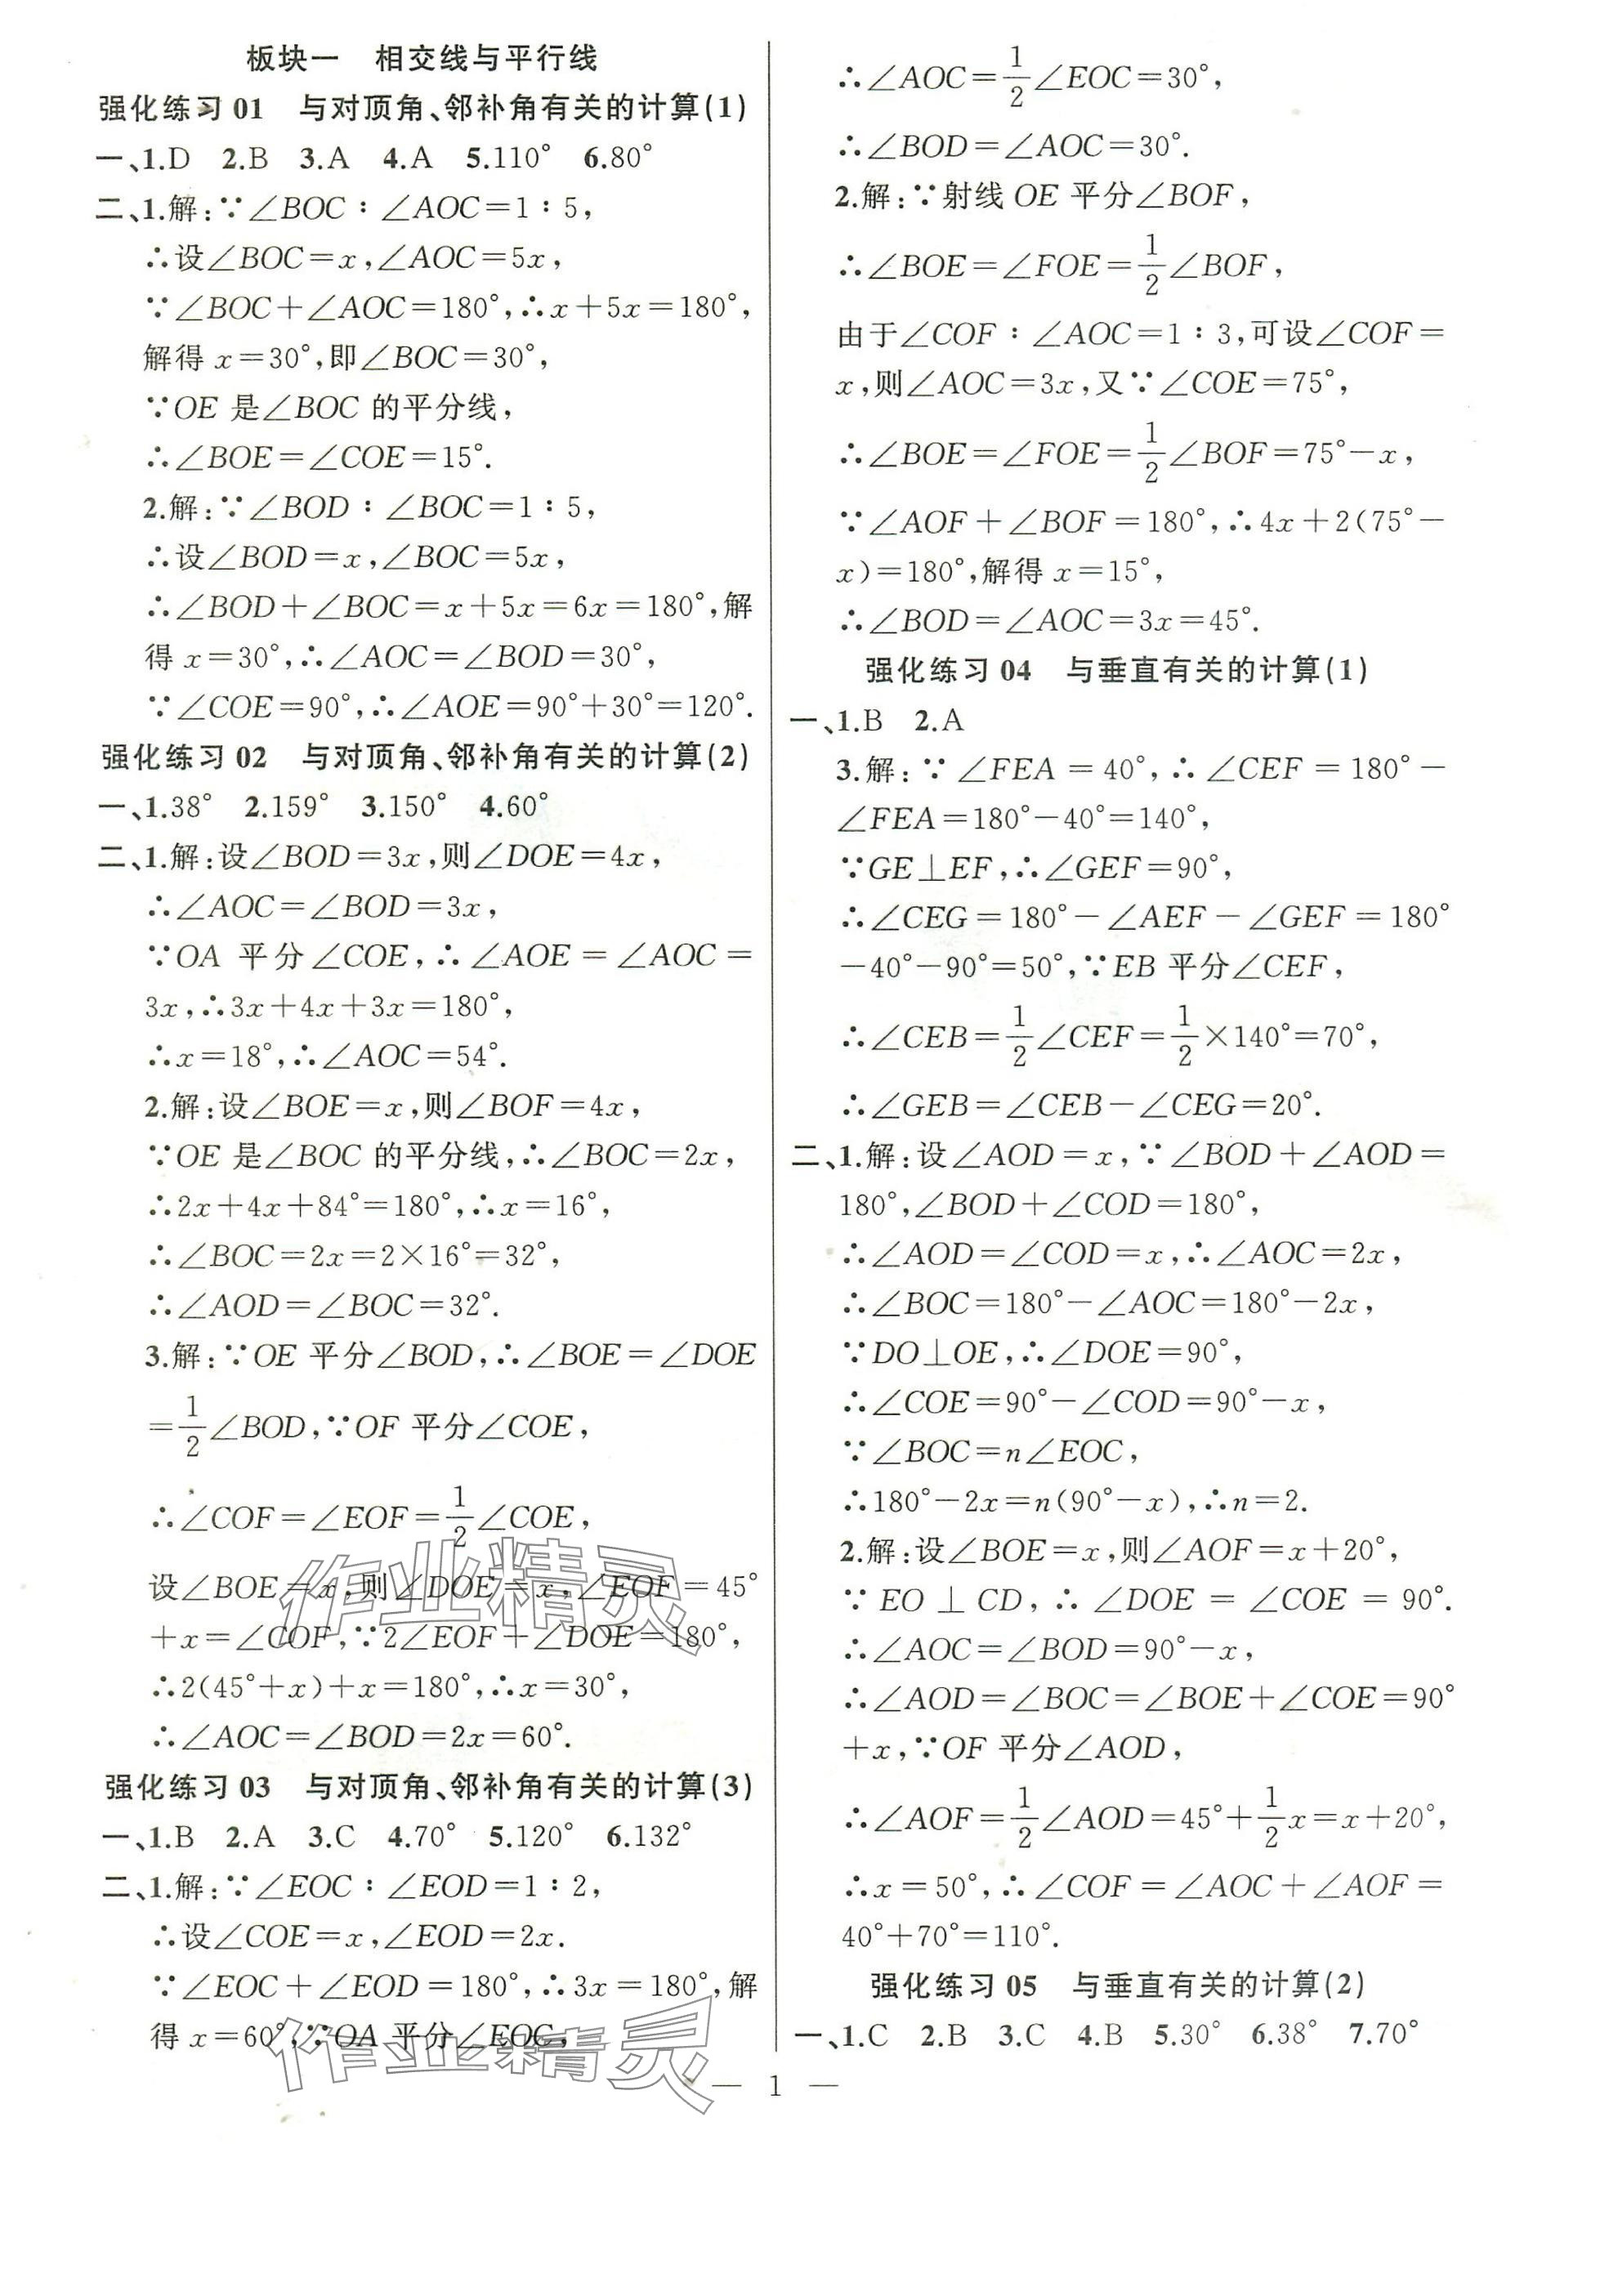 板块一　相交线与平行线
强化练习 01　与对顶角、邻补角有关的计算(1)
一、1.D　2.B　3.A　4.A　5.110°　6.80°
二、1.解:∵∠BOC∶∠AOC=1∶5,
∴设∠BOC=x,∠AOC=5x,
∵∠BOC+∠AOC=180°,∴x+5x=180°,
解得 x=30°,即∠BOC=30°,
∵OE 是∠BOC 的平分线,
∴∠BOE=∠COE=15°.
2.解:∵∠BOD∶∠BOC=1∶5,
∴设∠BOD=x,∠BOC=5x,
∴∠BOD+∠BOC=x+5x=6x=180°,解
得 x=30°,∴∠AOC=∠BOD=30°,
∵∠COE=90°,∴∠AOE=90°+30°=120°.
强化练习 02　与对顶角、邻补角有关的计算(2)
一、1.38°　2.159°　3.150°　4.60°
二、1.解:设∠BOD=3x,则∠DOE=4x,
∴∠AOC=∠BOD=3x,
∵OA 平分∠COE,∴∠AOE=∠AOC=
3x,∴3x+4x+3x=180°,
∴x=18°,∴∠AOC=54°.
2.解:设∠BOE=x,则∠BOF=4x,
∵OE 是∠BOC 的平分线,∴∠BOC=2x,
∴2x+4x+84°=180°,∴x=16°,
∴∠BOC=2x=2×16°=32°,
∴∠AOD=∠BOC=32°.
3.解:∵OE 平分∠BOD,∴∠BOE=∠DOE
=1/2∠BOD,∵OF 平分∠COE,
∴∠COF=∠EOF=1/2∠COE,
设∠BOE=x,则∠DOE=x,∠EOF=45°
+x=∠COF,∵2∠EOF+∠DOE=180°,
∴2(45°+x)+x=180°,∴x=30°,
∴∠AOC=∠BOD=2x=60°.
强化练习 03　与对顶角、邻补角有关的计算(3)
一、1.B　2.A　3.C　4.70°　5.120°　6.132°
二、1.解:∵∠EOC∶∠EOD=1∶2,
∴设∠COE=x,∠EOD=2x.
∵∠EOC+∠EOD=180°,∴3x=180°,解
得 x=60°,∵OA 平分∠EOC,
∴∠AOC=1/2∠EOC=30°,
∴∠BOD=∠AOC=30°.
2.解:∵射线 OE 平分∠BOF,
∴∠BOE=∠FOE=1/2∠BOF,
由于∠COF∶∠AOC=1∶3,可设∠COF=
x,则∠AOC=3x,又∵∠COE=75°,
∴∠BOE=∠FOE=1/2∠BOF=75°-x,
∵∠AOF+∠BOF=180°,∴4x+2(75°-
x)=180°,解得 x=15°,
∴∠BOD=∠AOC=3x=45°.
强化练习 04　与垂直有关的计算(1)
一、1.B　2.A
3.解:∵∠FEA=40°,∴∠CEF=180°-
∠FEA=180°-40°=140°,
∵GE⊥EF,∴∠GEF=90°,
∴∠CEG=180°-∠AEF-∠GEF=180°
-40°-90°=50°,∵EB 平分∠CEF,
∴∠CEB=1/2∠CEF=1/2×140°=70°,
∴∠GEB=∠CEB-∠CEG=20°.
二、1.解:设∠AOD=x,∵∠BOD+∠AOD=
180°,∠BOD+∠COD=180°,
∴∠AOD=∠COD=x,∴∠AOC=2x,
∴∠BOC=180°-∠AOC=180°-2x,
∵DO⊥OE,∴∠DOE=90°,
∴∠COE=90°-∠COD=90°-x,
∵∠BOC=n∠EOC,
∴180°-2x=n(90°-x),∴n=2.
2.解:设∠BOE=x,则∠AOF=x+20°,
∵EO⊥CD,∴∠DOE=∠COE=90°.
∴∠AOC=∠BOD=90°-x,
∴∠AOD=∠BOC=∠BOE+∠COE=90°
+x,∵OF 平分∠AOD,
∴∠AOF=1/2∠AOD=45°+1/2x=x+20°,
∴x=50°,∴∠COF=∠AOC+∠AOF=
40°+70°=110°.
强化练习 05　与垂直有关的计算(2)
一、1.C　2.B　3.C　4.B　5.30°　6.38°　7.70°
— 1 —
作业精灵
作业精灵